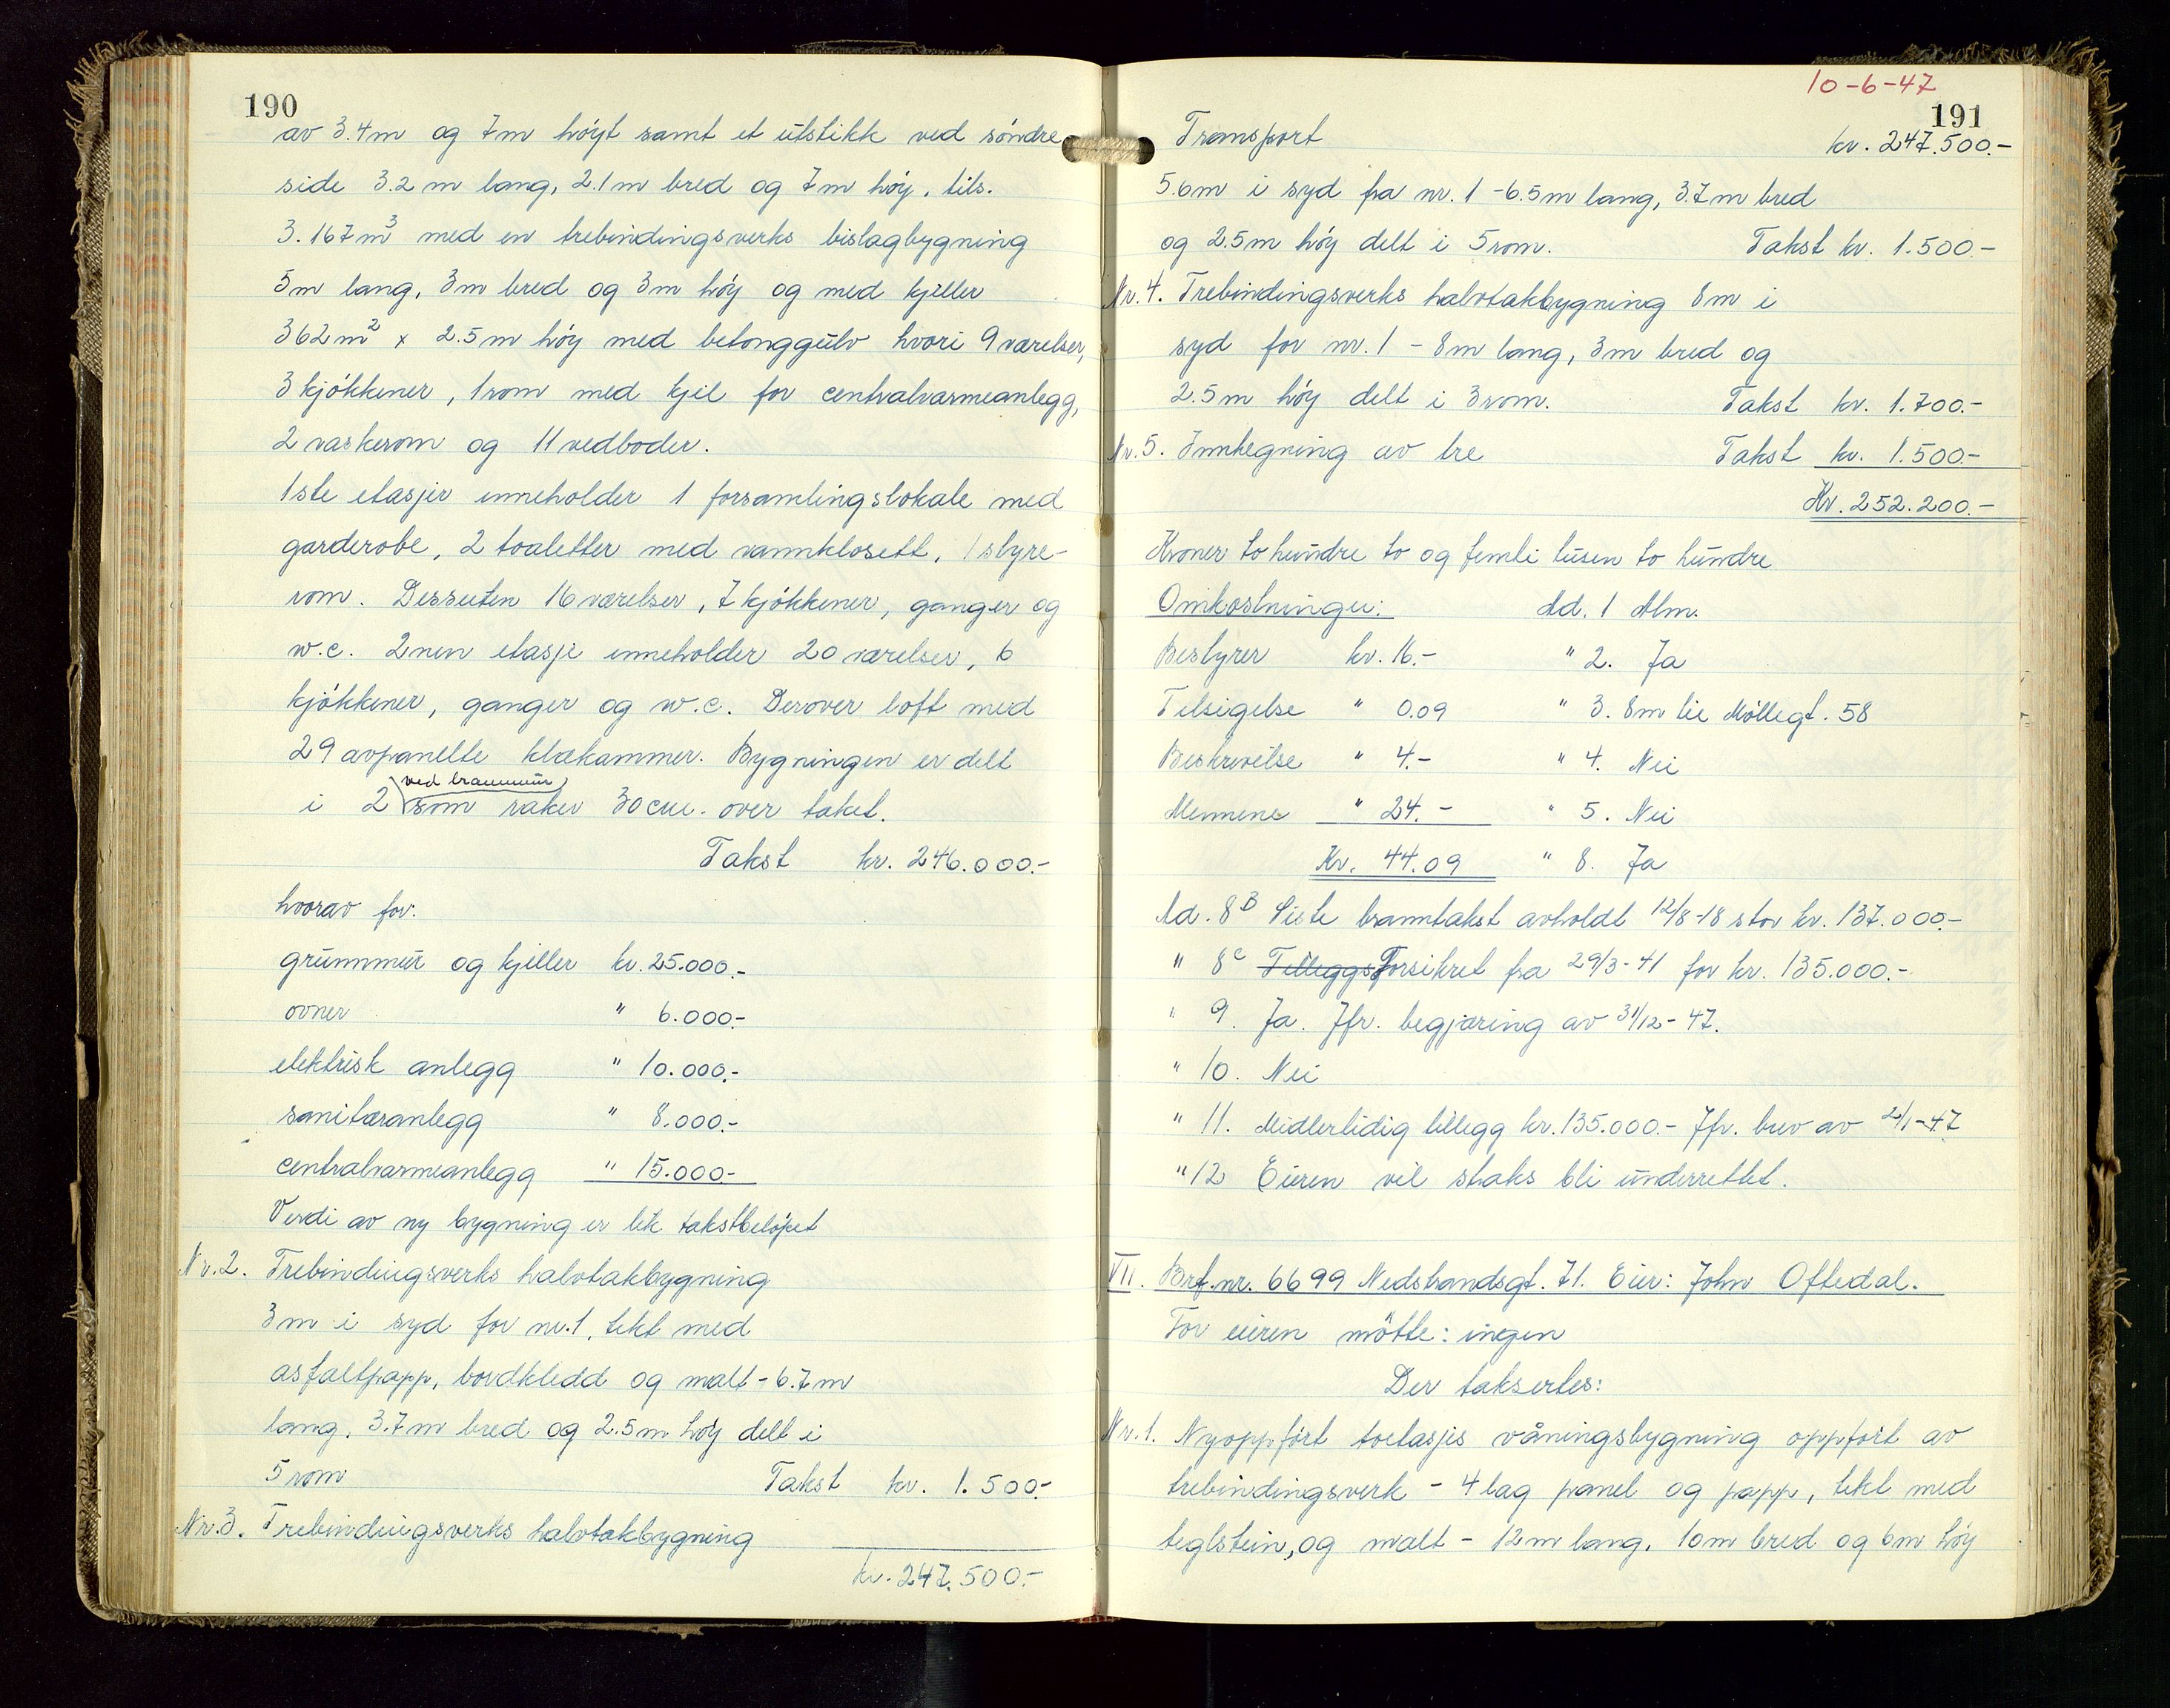 190
av 3.4m og 7m höyt samt et utstikk ved söndre
side 3.2m lang, 2.1m bred og 7m höy, tils.
3.167m³ med en trebindingsverks bislagbygning
5m lang, 3m bred og 3m höy og med kjeller
362m² x 2.5m höy med betonggulv hvori 9 værelser,
3 kjökkener, 1 rom med kjel for centralvarmeanlegg,
2 vaskerom og 11 vedboder.
1ste etasjer inneholder 1 forsamlingslokale med
garderobe, 2 toaletter med vannklosett, 1 styre-
rom. Dessuten 16 værelser, 7 kjökkener, ganger og
w.c. 2nen etasje inneholder 20 værelser, 6
kjökkener, ganger og w.c. Derover loft med
29 avpanelte klækammer. Bygningen er delt
ved brannmur
i 2 som raker 30 cm. over taket.
Takst kr. 246.000.-
hvorav for:
grunnmur og kjeller kr. 25.000.-
ovner " 6.000.-
elektrisk anlegg " 10.000.-
sanitæranlegg " 8.000.-
centralvarmeanlegg " 15.000.-
Verdi av ny bygning er lik takstbelöpet
Nr. 2. Trebindingsverks halvtakbygning
3m i syd for nr. 1, tekt med
asfaltpapp, bordkledd og malt - 6.7m
lang, 3.7m bred og 2.5m höy delt i
5 rom Takst kr. 1.500.-
Nr. 3. Trebindingsverks halvtakbygning
kr. 247.500.-
10-6-47
191
Transport kr. 247.500.-
5.6m i syd fra nr. 1 - 6.5m lang, 3.7m bred
og 2.5m höy delt i 5 rom. Takst kr. 1.500.-
Nr. 4. Trebindingsverks halvtakbygning 8m i
syd for nr. 1 - 8m lang, 3m bred og
2.5m höy delt i 3 rom. Takst kr. 1.700.-
Nr. 5. Innhegning av tre Takst kr. 1.500.-
Kr. 252.200.-
Kroner to hundre to og femti tusen to hundre
Omkostninger: Ad. 1 Alm.
Bestyrer kr. 16.- " 2. Ja
Tilsigelse " 0.09 " 3. 8m til Möllegt. 58
Beskrivelse " 4.- " 4. Nei
Mennene " 24.- " 5. Nei
Kr. 44.09 " 8. Ja
Ad. 8ᴮ Siste branntakst avholdt 12/8-18 stor kr. 137.000.-
" 8ᶜ Tilleggs Forsikret fra 29/3-41 for kr. 135.000.-
" 9. Ja. Jfr. begjæring av 31/12-47.
" 10. Nei
" 11. Midlertidig tillegg kr. 135.000.- Jfr. brev av 2/1-47
" 12 Eieren vil straks bli underrettet.
VII. Brf. nr. 6699 Nedstrandsgt. 71. Eier: John Oftedal.
For eieren mötte: ingen
Der taksertes:
Nr. 1. Nyoppfört toetasjes våningsbygning oppfört av
trebindingsverk - 4 lag panel og papp, tekt med
teglstein, og malt - 12m lang, 10m bred og 6m höy